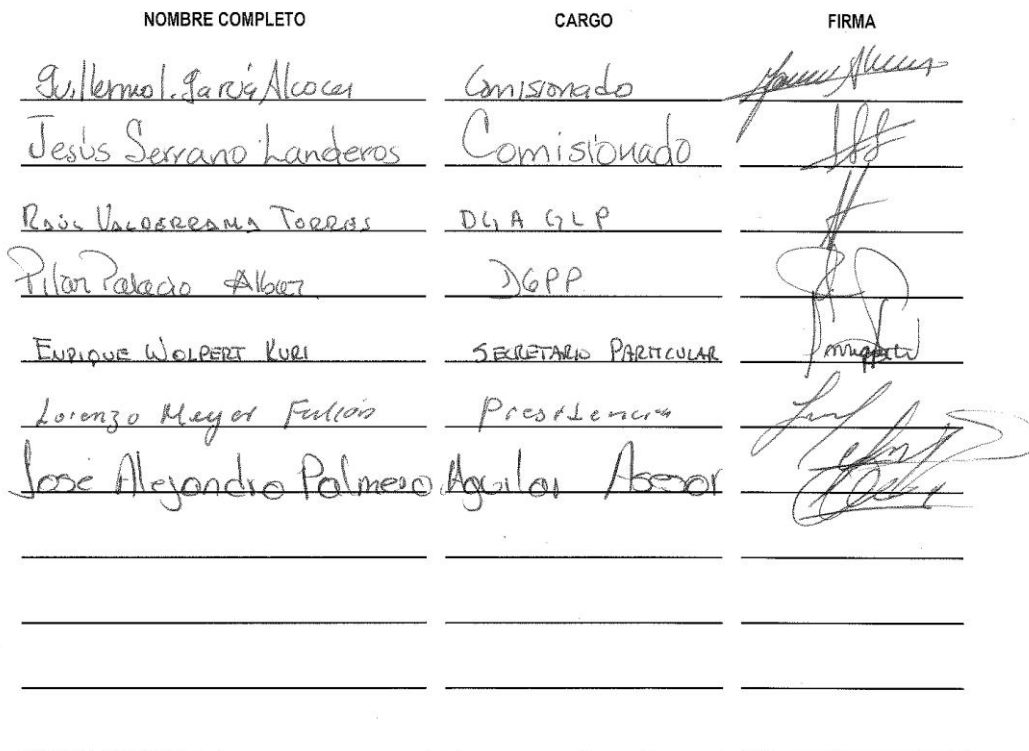 NOMBRE COMPLETO CARGO FIRMA
Guillermo I. García Alcocer Comisionado
Jesús Serrano Landeros Comisionado
RAÚL VALDERRAMA TORRES DGA GLP
Pilar Palacio DGPP
ENRIQUE WOLPERT KURI SECRETARIO PARTICULAR
Lorenzo Meyer Presidencia
José Alejandro Palmero Aguilar Asesor